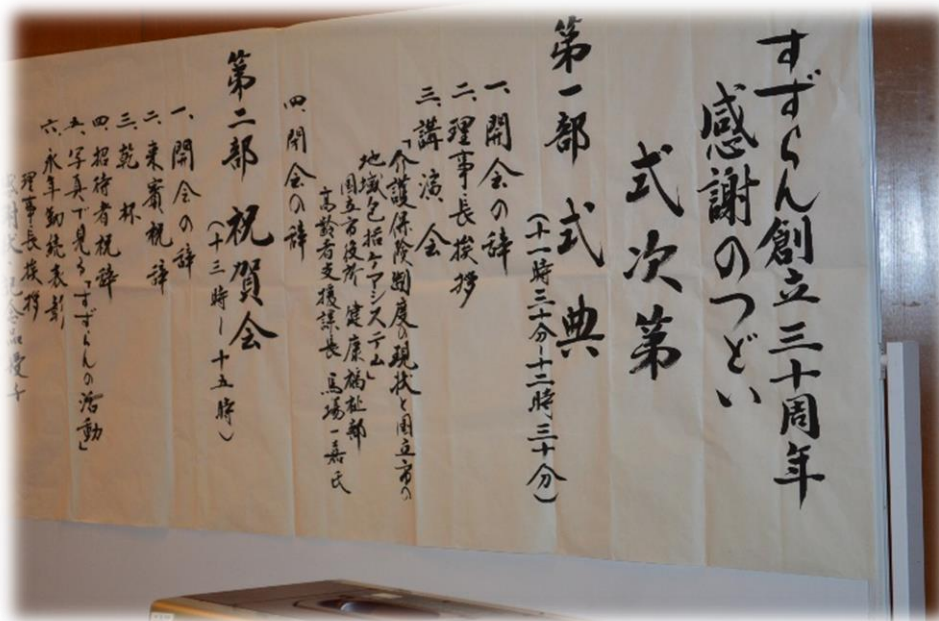 すずらん創立三十周年
感謝のつどい
式次第
第一部 式典
(十一時三十分〜十二時三十分)
一、開会の辞
二、理事長挨拶
三、講演会
「介護保険制度の現状と国立市の
地域包括ケアシステム」
国立市役所 健康福祉部
高齢者支援課長 馬場一嘉氏
四、閉会の辞
第二部 祝賀会
(十三時〜十五時)
一、開会の辞
二、来賓祝辞
三、乾杯
四、招待者祝辞
五、写真で見る「すずらんの活動」
六、永年勤続表彰
理事長挨拶